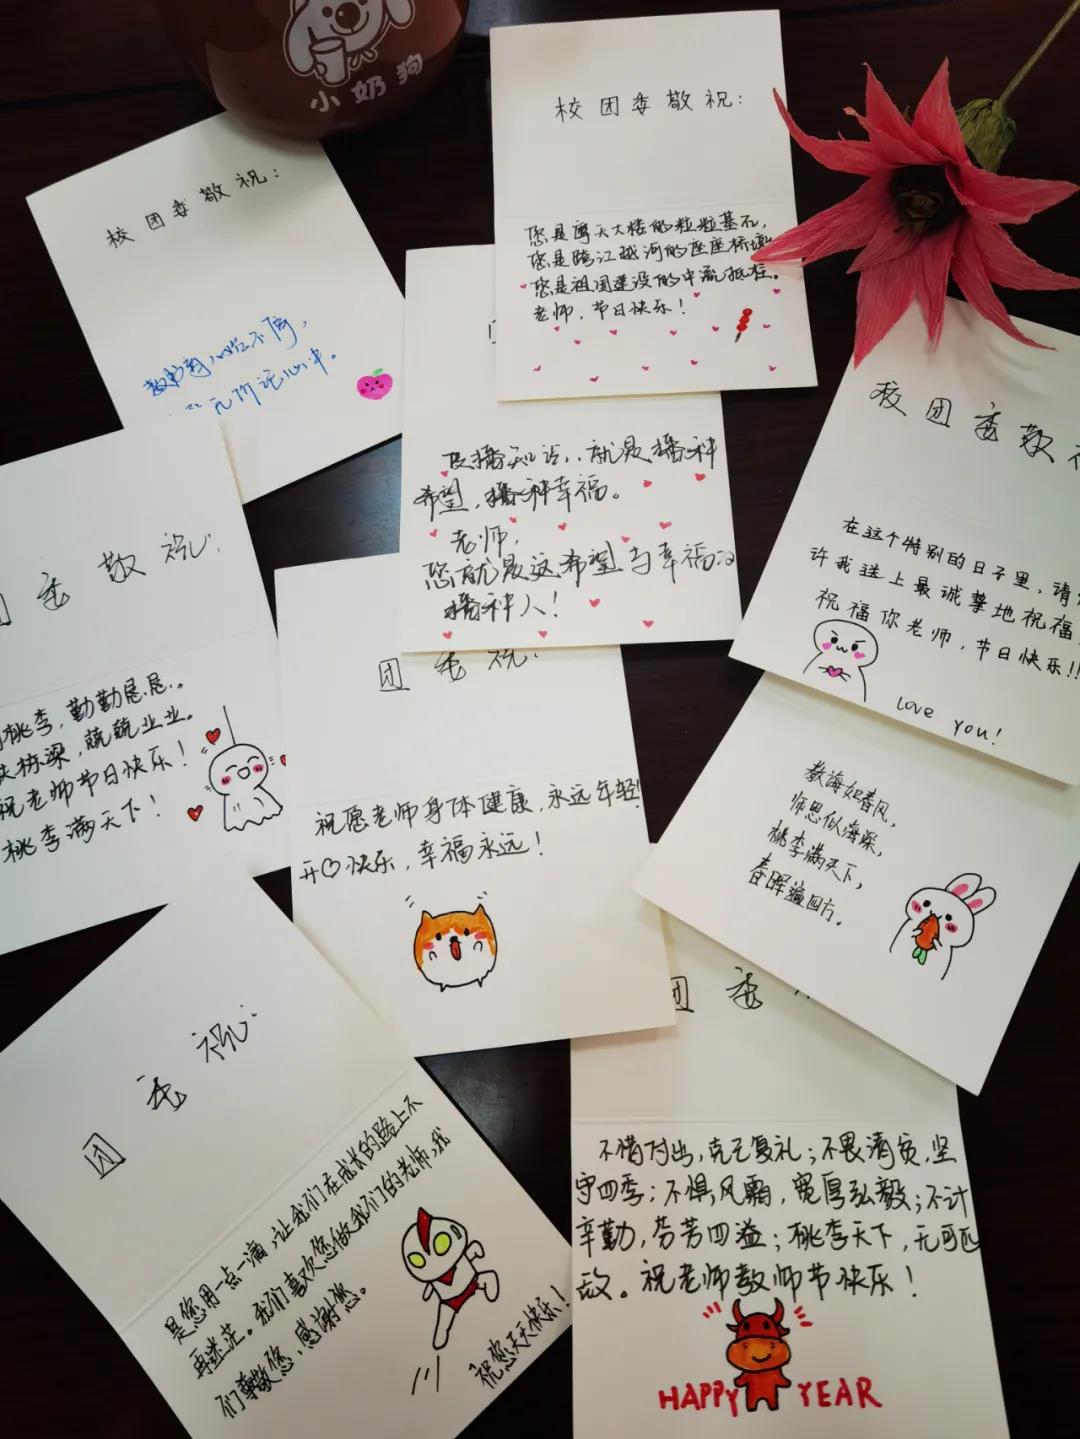 小奶狗
校团委敬祝：
您是摩天大楼的粒粒基石，
您是跨江越河的座座桥墩
您是祖国建设的中流抵柱。
老师，节日快乐！
校团委敬祝：
教书育人
元阶
心中。
校团委敬
在这个特别的日子里，请
许我送上最诚挚地祝福
祝福你老师，节日快乐!!
Love you!
播知识，就是播种
希望，播种幸福。
老师，
您就是这希望与幸福的
播种人！
团委敬祝:
桃李，勤勤恳恳。
栋梁，兢兢业业。
祝老师节日快乐！
桃李满天下！
团委祝:
祝愿老师身体健康，永远年轻!
开♡快乐，幸福永远！
教诲如春风，
师恩似海深，
桃李满天下，
春晖遍四方。
团委祝:
是您用一点一滴，让我们在成长的路上不
再迷茫。我们喜欢您做我们的老师，我
们尊敬您，感谢您。
祝您天天快乐！
团委
不惜付出，克己复礼；不畏清贫，坚
守四季；不惧风霜，宽厚弘毅；不计
辛勤，芬芳四溢；桃李天下，无可匹
敌。祝老师教师节快乐！
HAPPY YEAR